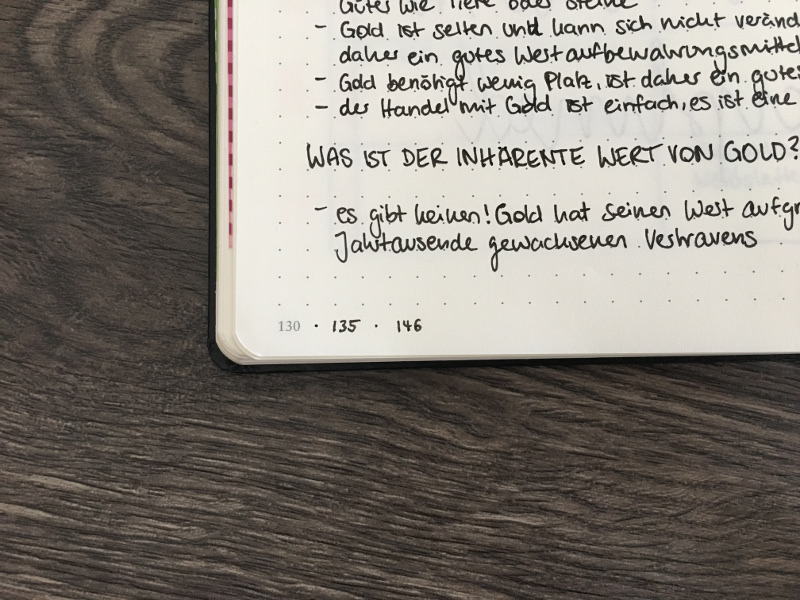 Güter wie Tiere oder Steine
- Gold ist selten und kann sich nicht veränd
daher ein gutes Wertaufbewahrungsmittel
- Gold benötigt wenig Platz, ist daher ein gutes
- der Handel mit Gold ist einfach, es ist eine
WAS IST DER INHÄRENTE WERT VON GOLD?
- es gibt keinen! Gold hat seinen Wert aufgr
Jahrtausende gewachsenen Vertrauens
130 · 135 · 146